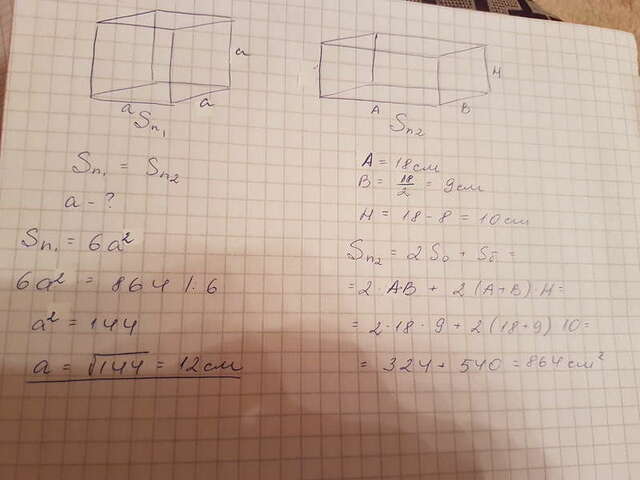 a
a
a
Sп₁
Sп₁ = Sп₂
a - ?
Sп₁ = 6a²
6a² = 864 |: 6
a² = 144
a = √144 = 12см
H
A
B
Sп₂
A = 18см
B = 18/2 = 9см
H = 18 - 8 = 10см
Sп₂ = 2S₀ + Sб =
= 2 · A·B + 2 (A+B)·H =
= 2·18·9 + 2(18+9) 10 =
= 324 + 540 = 864см²